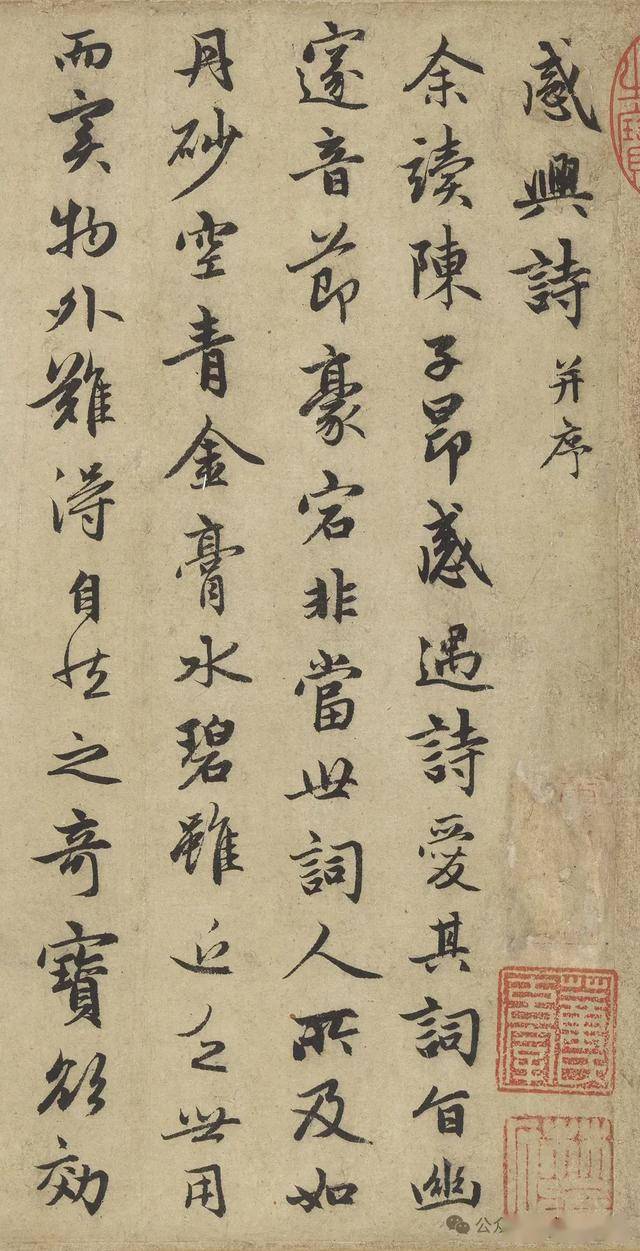 感興詩并序
余讀陳子昂感遇詩愛其詞旨幽
邃音節豪宕非當世詞人所及如
丹砂空青金膏水碧雖近乏世用
而實物外難得自然之奇寶欲効
公众